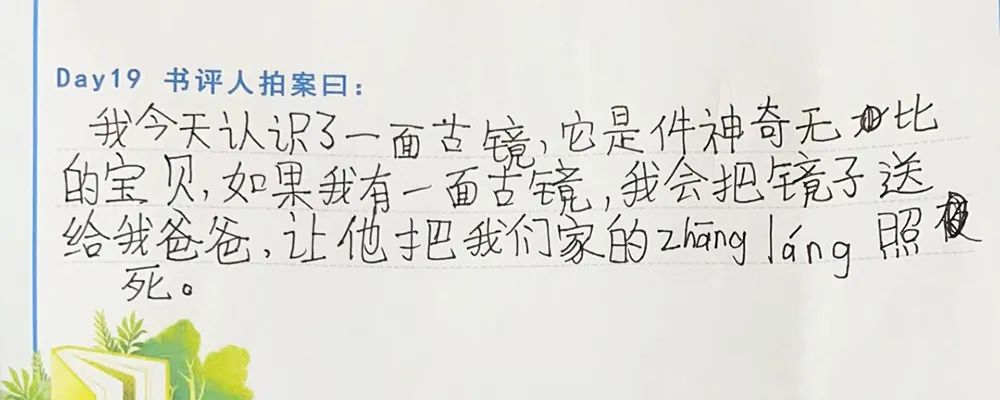 Day19 书评人拍案曰：
我今天认识了一面古镜,它是件神奇无比
的宝贝,如果我有一面古镜,我会把镜子送
给我爸爸,让他把我们家的zhāng láng 照
死。